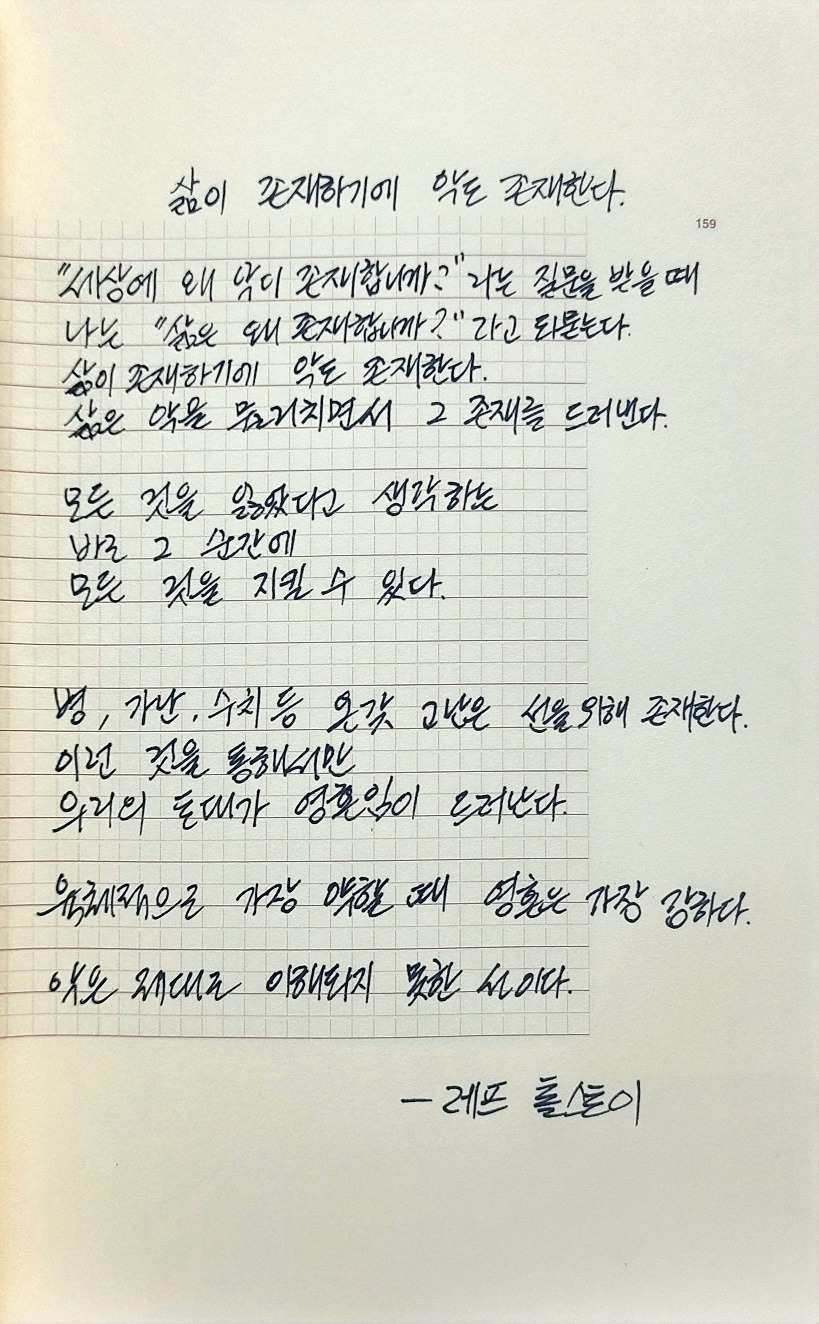 삶이 존재하기에 악도 존재한다.
159
"세상에 왜 악이 존재합니까?"라는 질문을 받을 때
나는 "삶은 왜 존재합니까?"라고 되묻는다.
삶이 존재하기에 악도 존재한다.
삶은 악을 물리치면서 그 존재를 드러낸다.
모든 것을 잃었다고 생각하는
바로 그 순간에
모든 것을 지킬 수 있다.
병, 가난, 수치 등 온갖 고난은 선을 위해 존재한다.
이런 것을 통해서만
우리의 토대가 영혼임이 드러난다.
육체적으로 가장 약할 때 영혼은 가장 강하다.
악은 제대로 이해되지 못한 선이다.
- 레프 톨스토이